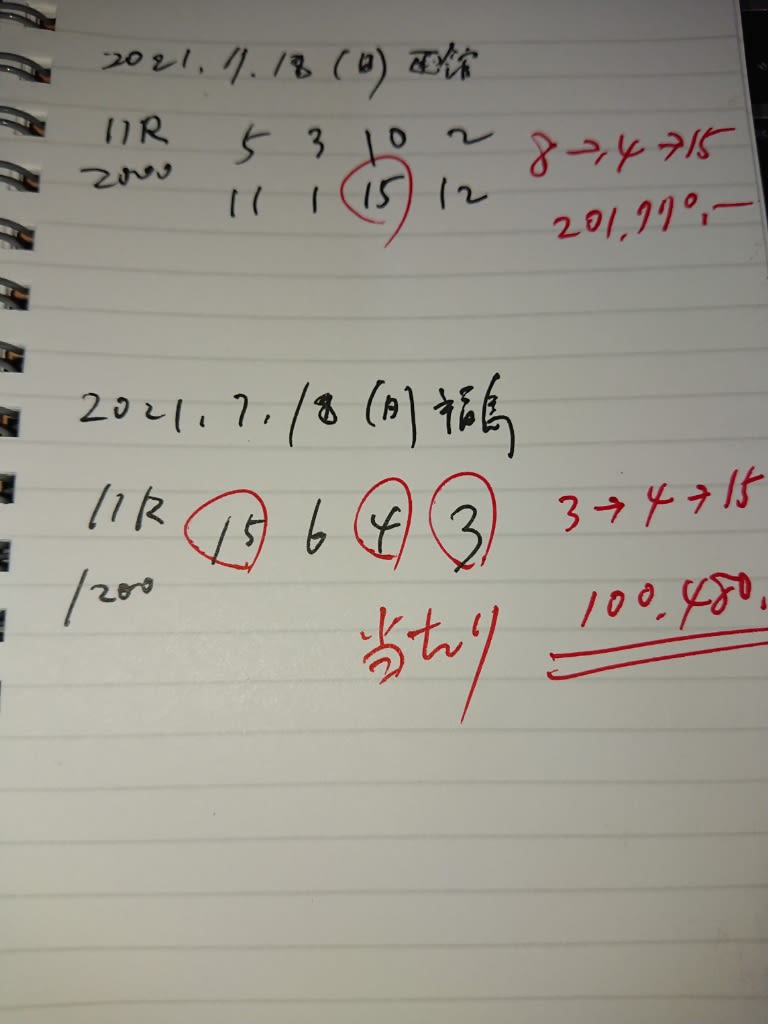 2021.7.18(日)函館
11R 5 3 10 2 8→4→15
2000 11 1 15 12 201.770.―
2021.7.18(日)福島
11R 15 6 4 3 3→4→15
1200
当たり 100.480.